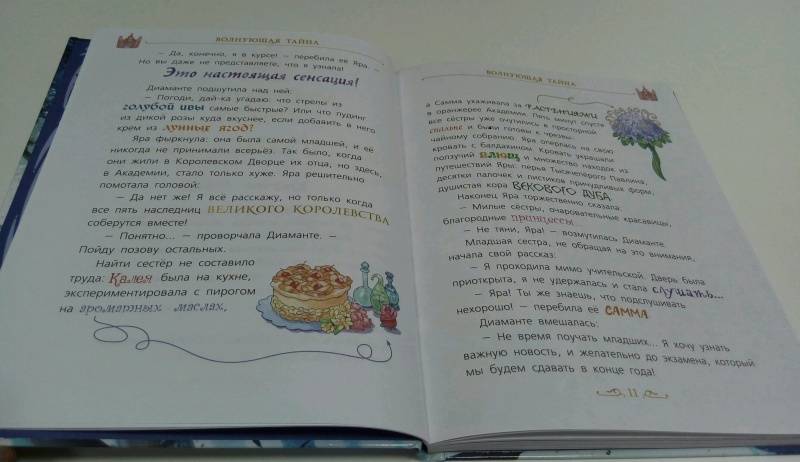 ВОЛНУЮЩАЯ ТАЙНА
– Да, конечно, я в курсе! – перебила её Яра. –
Но вы даже не представляете, что я узнала!
Это настоящая сенсация!
Диаманте подшутила над ней:
– Погоди, дай-ка угадаю: что стрелы из
голубой ивы самые быстрые? Или что пудинг
из дикой розы куда вкуснее, если добавить в него
крем из лунных ягод?
Яра фыркнула: она была самой младшей, и её
никогда не принимали всерьёз. Так было, когда
они жили в Королевском Дворце их отца, но здесь,
в Академии, стало только хуже. Яра решительно
помотала головой:
– Да нет же! Я всё расскажу, но только когда
все пять наследниц ВЕЛИКОГО КОРОЛЕВСТВА
соберутся вместе!
– Понятно... – проворчала Диаманте. –
Пойду позову остальных.
Найти сестёр не составило
труда: Калея была на кухне,
экспериментировала с пирогом
на ароматных маслах,
ВОЛНУЮЩАЯ ТАЙНА
а Самма ухаживала за РАСТЕНИЯМИ
в оранжерее Академии. Пять минут спустя
все сёстры уже очутились в просторной
спальне и были готовы к чрезвы-
чайному собранию. Яра оперлась на свою
кровать с балдахином. Кровать украшали
ползучий плющ и множество находок из
путешествий Яры: перья Тысячепёрого Павлина,
десятки палочек и листиков причудливых форм,
душистая кора ВЕКОВОГО ДУБА.
Наконец Яра торжественно сказала:
– Милые сёстры, очаровательные красавицы,
благородные принцессы...
– Не тяни, Яра! – возмутилась Диаманте.
Младшая сестра, не обращая на это внимания,
начала свой рассказ:
– Я проходила мимо учительской. Дверь была
приоткрыта, я не удержалась и стала слушать...
– Яра! Ты же знаешь, что подслушивать
нехорошо! – перебила её САММА.
Диаманте вмешалась:
– Не время поучать младших... Я хочу узнать
важную новость, и желательно до экзамена, который
мы будем сдавать в конце года!
11